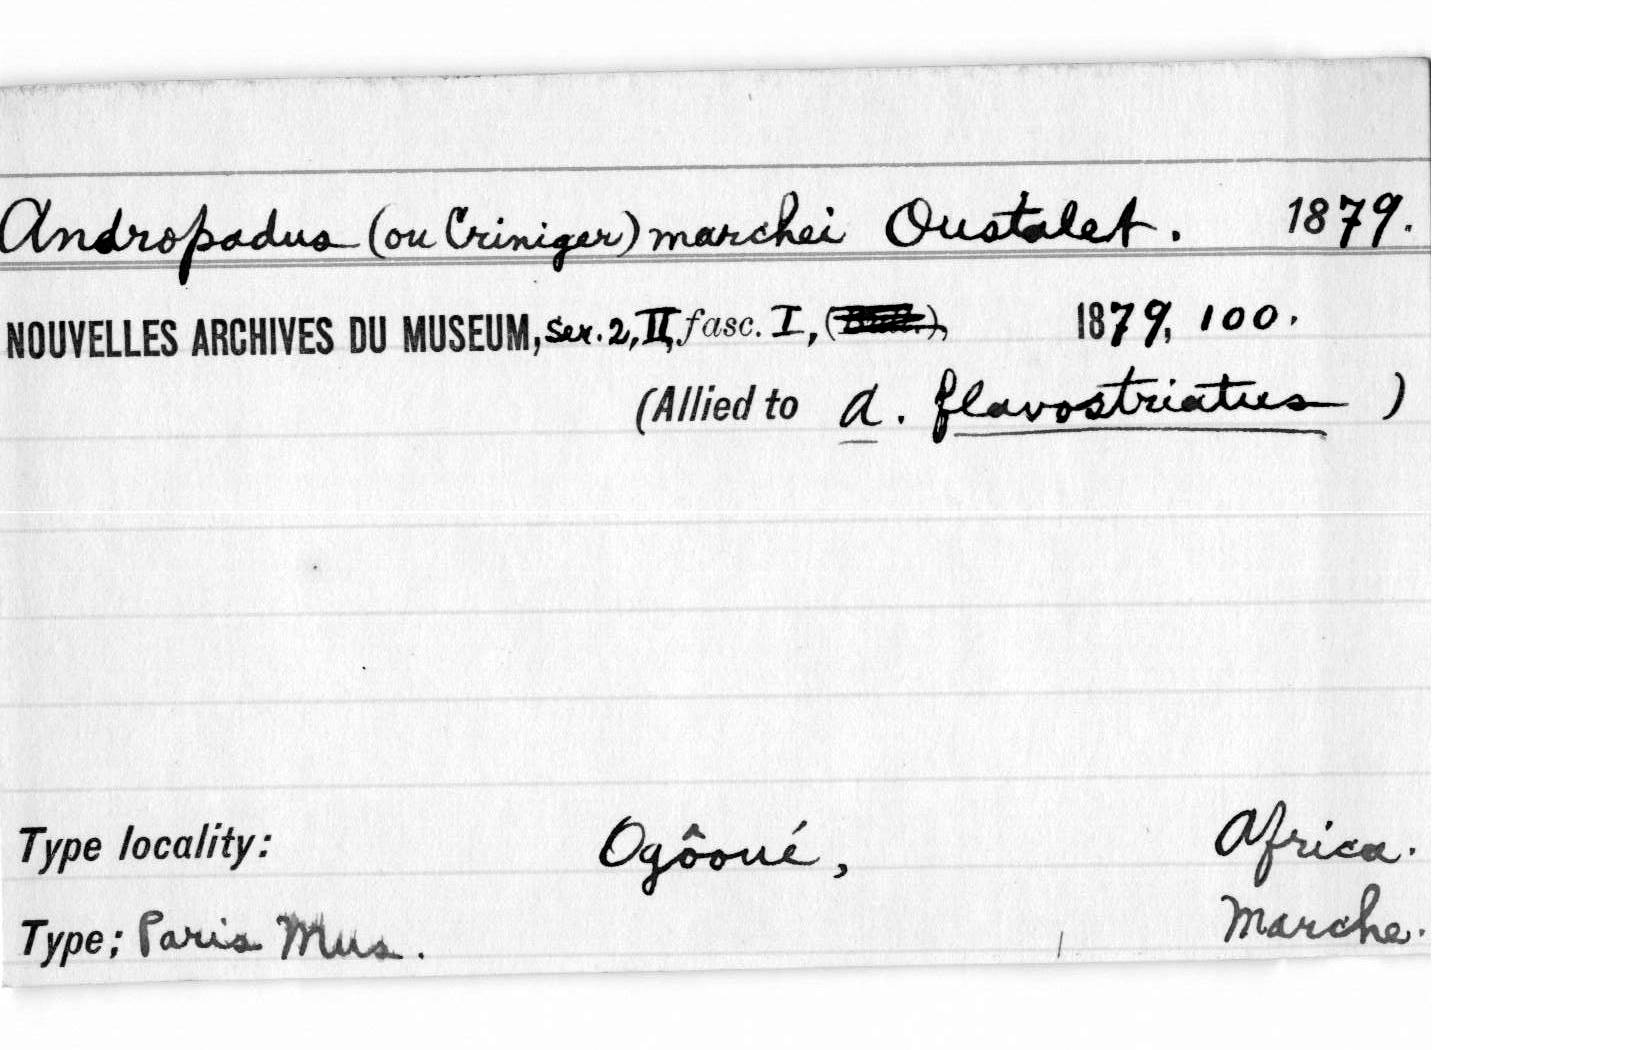 Andropadus (ou Criniger) marchei Oustalet. 1879.
NOUVELLES ARCHIVES DU MUSEUM, Ser. 2, II, fasc. I, 1879, 100.
(Allied to A. flavostriatus )
Type locality: Ogôoué, Africa.
Type; Paris Mus. Marche.